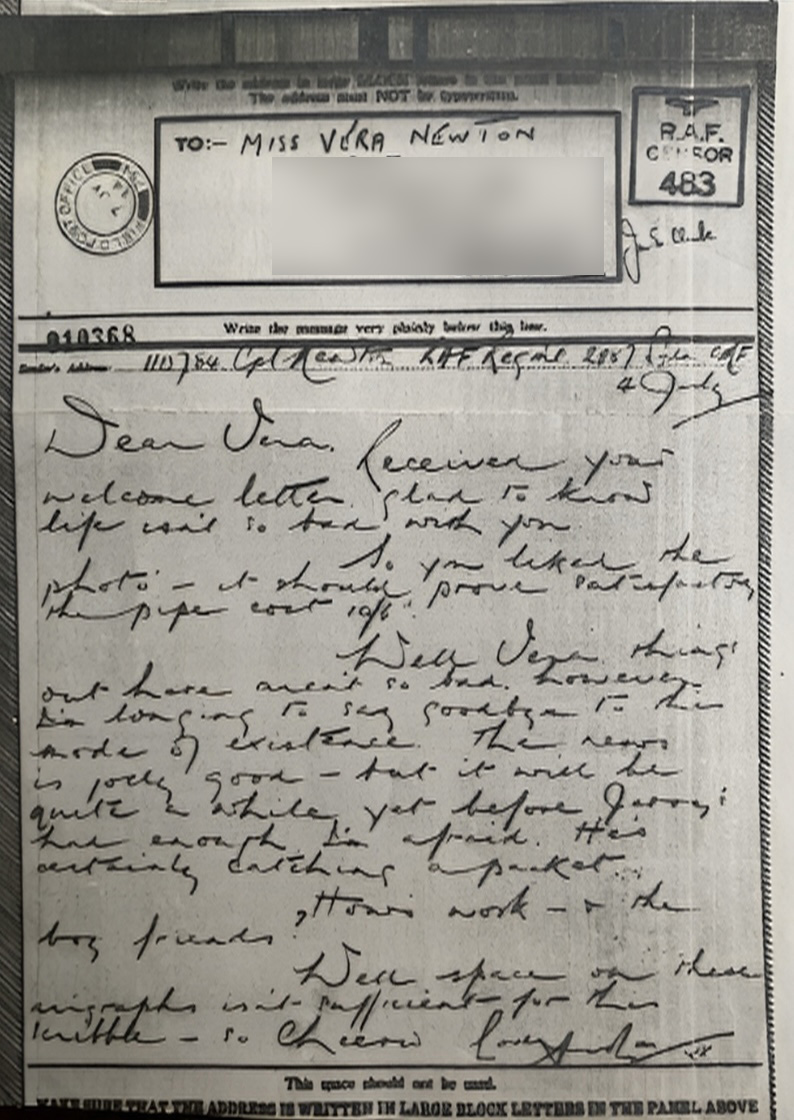 The address must NOT be typewritten.
TO:- MISS VERA NEWTON
R.A.F.
CENSOR
483
FIELD POST OFFICE
010368
Write the message very plainly below this line.
Sender's Address Cpl Newton RAF Regmt. CMF
4 July
Dear Vera.
Received your
welcome letter, glad to know
life isn't so bad with you
So you liked the
photo - it should prove satisfactory
the pipe cost 10/6.
Well Vera things
out here aren't so bad. however
I'm longing to say goodbye to this
mode of existence. The news
is jolly good - but it will be
quite a while yet before Jerry's
had enough I'm afraid. He's
certainly catching a packet..
How's work - & the
boy friends?
Well space on these
airgraphs isn't sufficient for this
scribble - so Cheerio Love
This space should not be used.
MAKE SURE THAT THE ADDRESS IS WRITTEN IN LARGE BLOCK LETTERS IN THE PANEL ABOVE